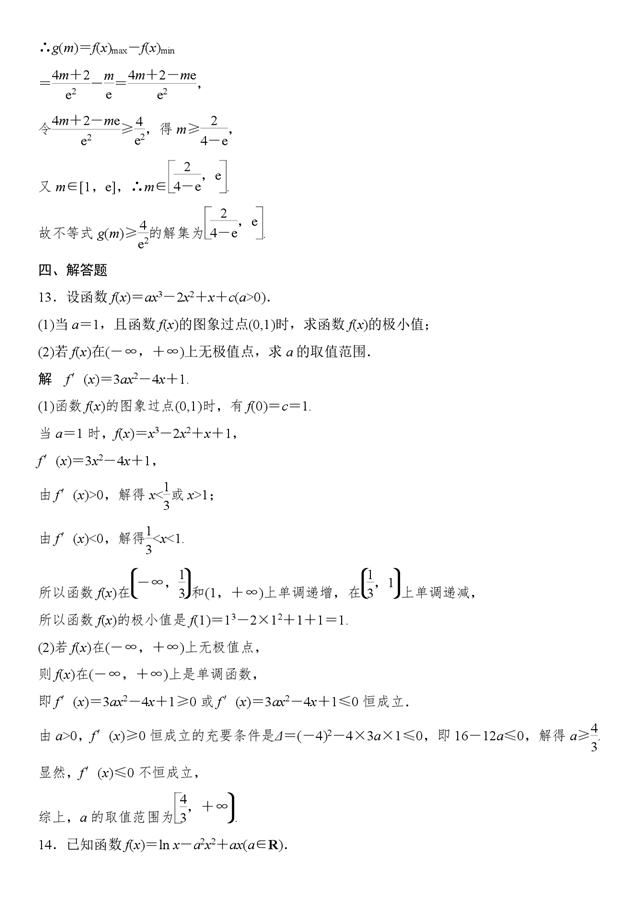 ∴g(m)=f(x)max-f(x)min
=\frac{4m+2}{e²}-\frac{m}{e}=\frac{4m+2-me}{e²},
令\frac{4m+2-me}{e²}≥\frac{4}{e²},得 m≥\frac{2}{4-e},
又 m∈[1,e],∴m∈[\frac{2}{4-e},e].
故不等式 g(m)≥\frac{4}{e²}的解集为[\frac{2}{4-e},e].
四、解答题
13.设函数 f(x)=ax³-2x²+x+c(a>0).
(1)当 a=1,且函数 f(x)的图象过点(0,1)时,求函数 f(x)的极小值;
(2)若 f(x)在(-∞,+∞)上无极值点,求 a 的取值范围.
解 f′(x)=3ax²-4x+1.
(1)函数 f(x)的图象过点(0,1)时,有 f(0)=c=1.
当 a=1 时,f(x)=x³-2x²+x+1,
f′(x)=3x²-4x+1,
由 f′(x)>0,解得 x<\frac{1}{3}或 x>1;
由 f′(x)<0,解得\frac{1}{3}<x<1.
所以函数 f(x)在(-∞,\frac{1}{3})和(1,+∞)上单调递增,在(\frac{1}{3},1)上单调递减,
所以函数 f(x)的极小值是 f(1)=1³-2×1²+1+1=1.
(2)若 f(x)在(-∞,+∞)上无极值点,
则 f(x)在(-∞,+∞)上是单调函数,
即 f′(x)=3ax²-4x+1≥0 或 f′(x)=3ax²-4x+1≤0 恒成立.
由 a>0,f′(x)≥0 恒成立的充要条件是Δ=(-4)²-4×3a×1≤0,即 16-12a≤0,解得 a≥\frac{4}{3}.
显然,f′(x)≤0 不恒成立,
综上,a 的取值范围为[\frac{4}{3},+∞).
14.已知函数 f(x)=ln x-a²x²+ax(a∈R).